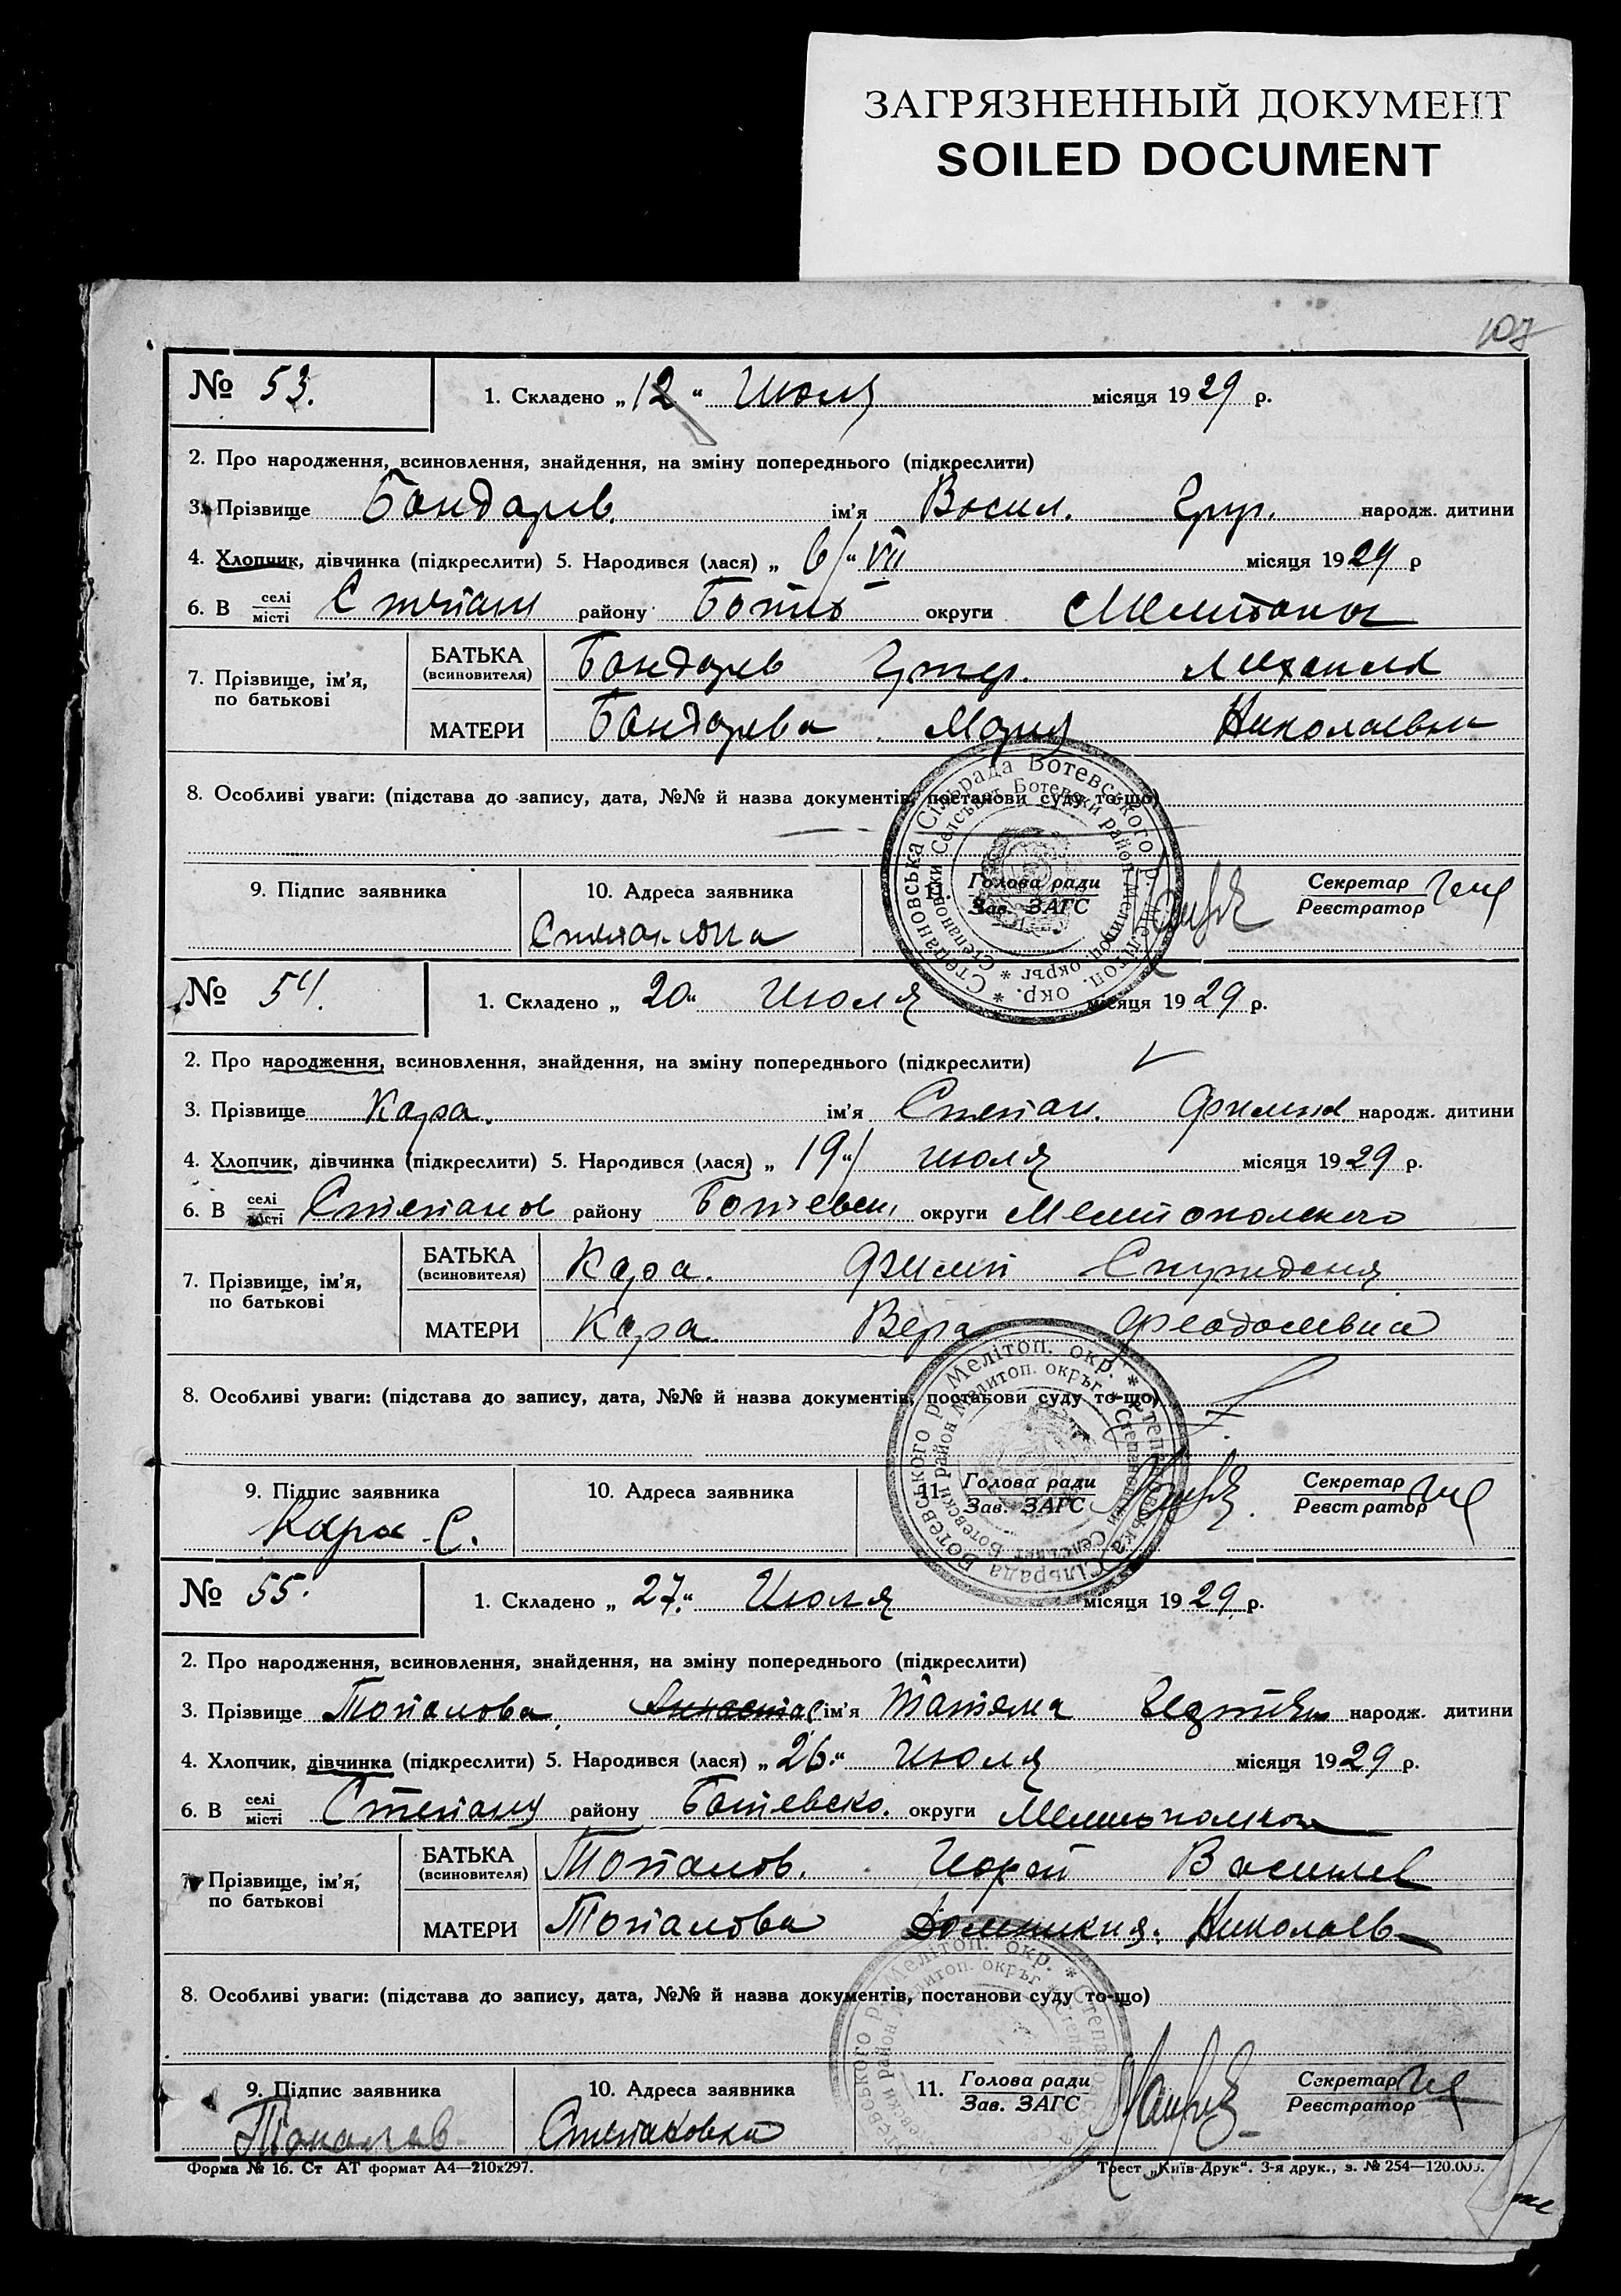 ЗАГРЯЗНЕННЫЙ ДОКУМЕНТ
SOILED DOCUMENT
107
№ 53. 1. Складено „12“ Июля місяця 1929 р.
2. Про народження, всиновлення, знайдення, на зміну попереднього (підкреслити)
3. Прізвище Бондарев. ім'я Васил. народж. дитини
4. Хлопчик, дівчинка (підкреслити) 5. Народився (лася) „6“ VII місяця 1929 р
6. В селі місті Степан району округи
7. Прізвище, ім'я, по батькові БАТЬКА (всиновителя) Бондарев Михаил
МАТЕРИ Бондарева Мария Николаевн
8. Особливі уваги: (підстава до запису, дата, №№ й назва документів, постанови суду то-що)
Степановська Сільрада Ботевського р. Мелітоп. окр. *
Степановски Селсъвет Ботевски район Мелитоп. окръг *
9. Підпис заявника 10. Адреса заявника 11. Голова ради Зав. ЗАГС Секретар Реєстратор
Степановка
№ 54. 1. Складено „20“ Июля місяця 1929 р.
2. Про народження, всиновлення, знайдення, на зміну попереднього (підкреслити)
3. Прізвище Кара. ім'я Степан. народж. дитини
4. Хлопчик, дівчинка (підкреслити) 5. Народився (лася) „19“ июля місяця 1929 р.
6. В селі місті Степанов району Ботевск округи Мелитопольского
7. Прізвище, ім'я, по батькові БАТЬКА (всиновителя) Кара. Филип
МАТЕРИ Кара Вера Феодосевна
8. Особливі уваги: (підстава до запису, дата, №№ й назва документів, постанови суду то-що)
Степановська Сільрада Ботевського р. Мелітоп. окр. *
Степановски Селсъвет Ботевски район Мелитоп. окръг *
9. Підпис заявника 10. Адреса заявника 11. Голова ради Зав. ЗАГС Секретар Реєстратор
Кара С.
№ 55. 1. Складено „27“ Июля місяця 1929 р.
2. Про народження, всиновлення, знайдення, на зміну попереднього (підкреслити)
3. Прізвище Топалова, ім'я Татяна народж. дитини
4. Хлопчик, дівчинка (підкреслити) 5. Народився (лася) „26“ июля місяця 1929 р.
6. В селі місті району Ботевско. округи
7. Прізвище, ім'я, по батькові БАТЬКА (всиновителя) Топалов. Василев
МАТЕРИ Топалова Доминикия. Николаев
8. Особливі уваги: (підстава до запису, дата, №№ й назва документів, постанови суду то-що)
9. Підпис заявника 10. Адреса заявника 11. Голова ради Зав. ЗАГС Секретар Реєстратор
Топалов Степановка
Форма № 16. Ст АТ формат А4—210х297. Трест „Київ-Друк“. 3-я друк., з. № 254—120.000.